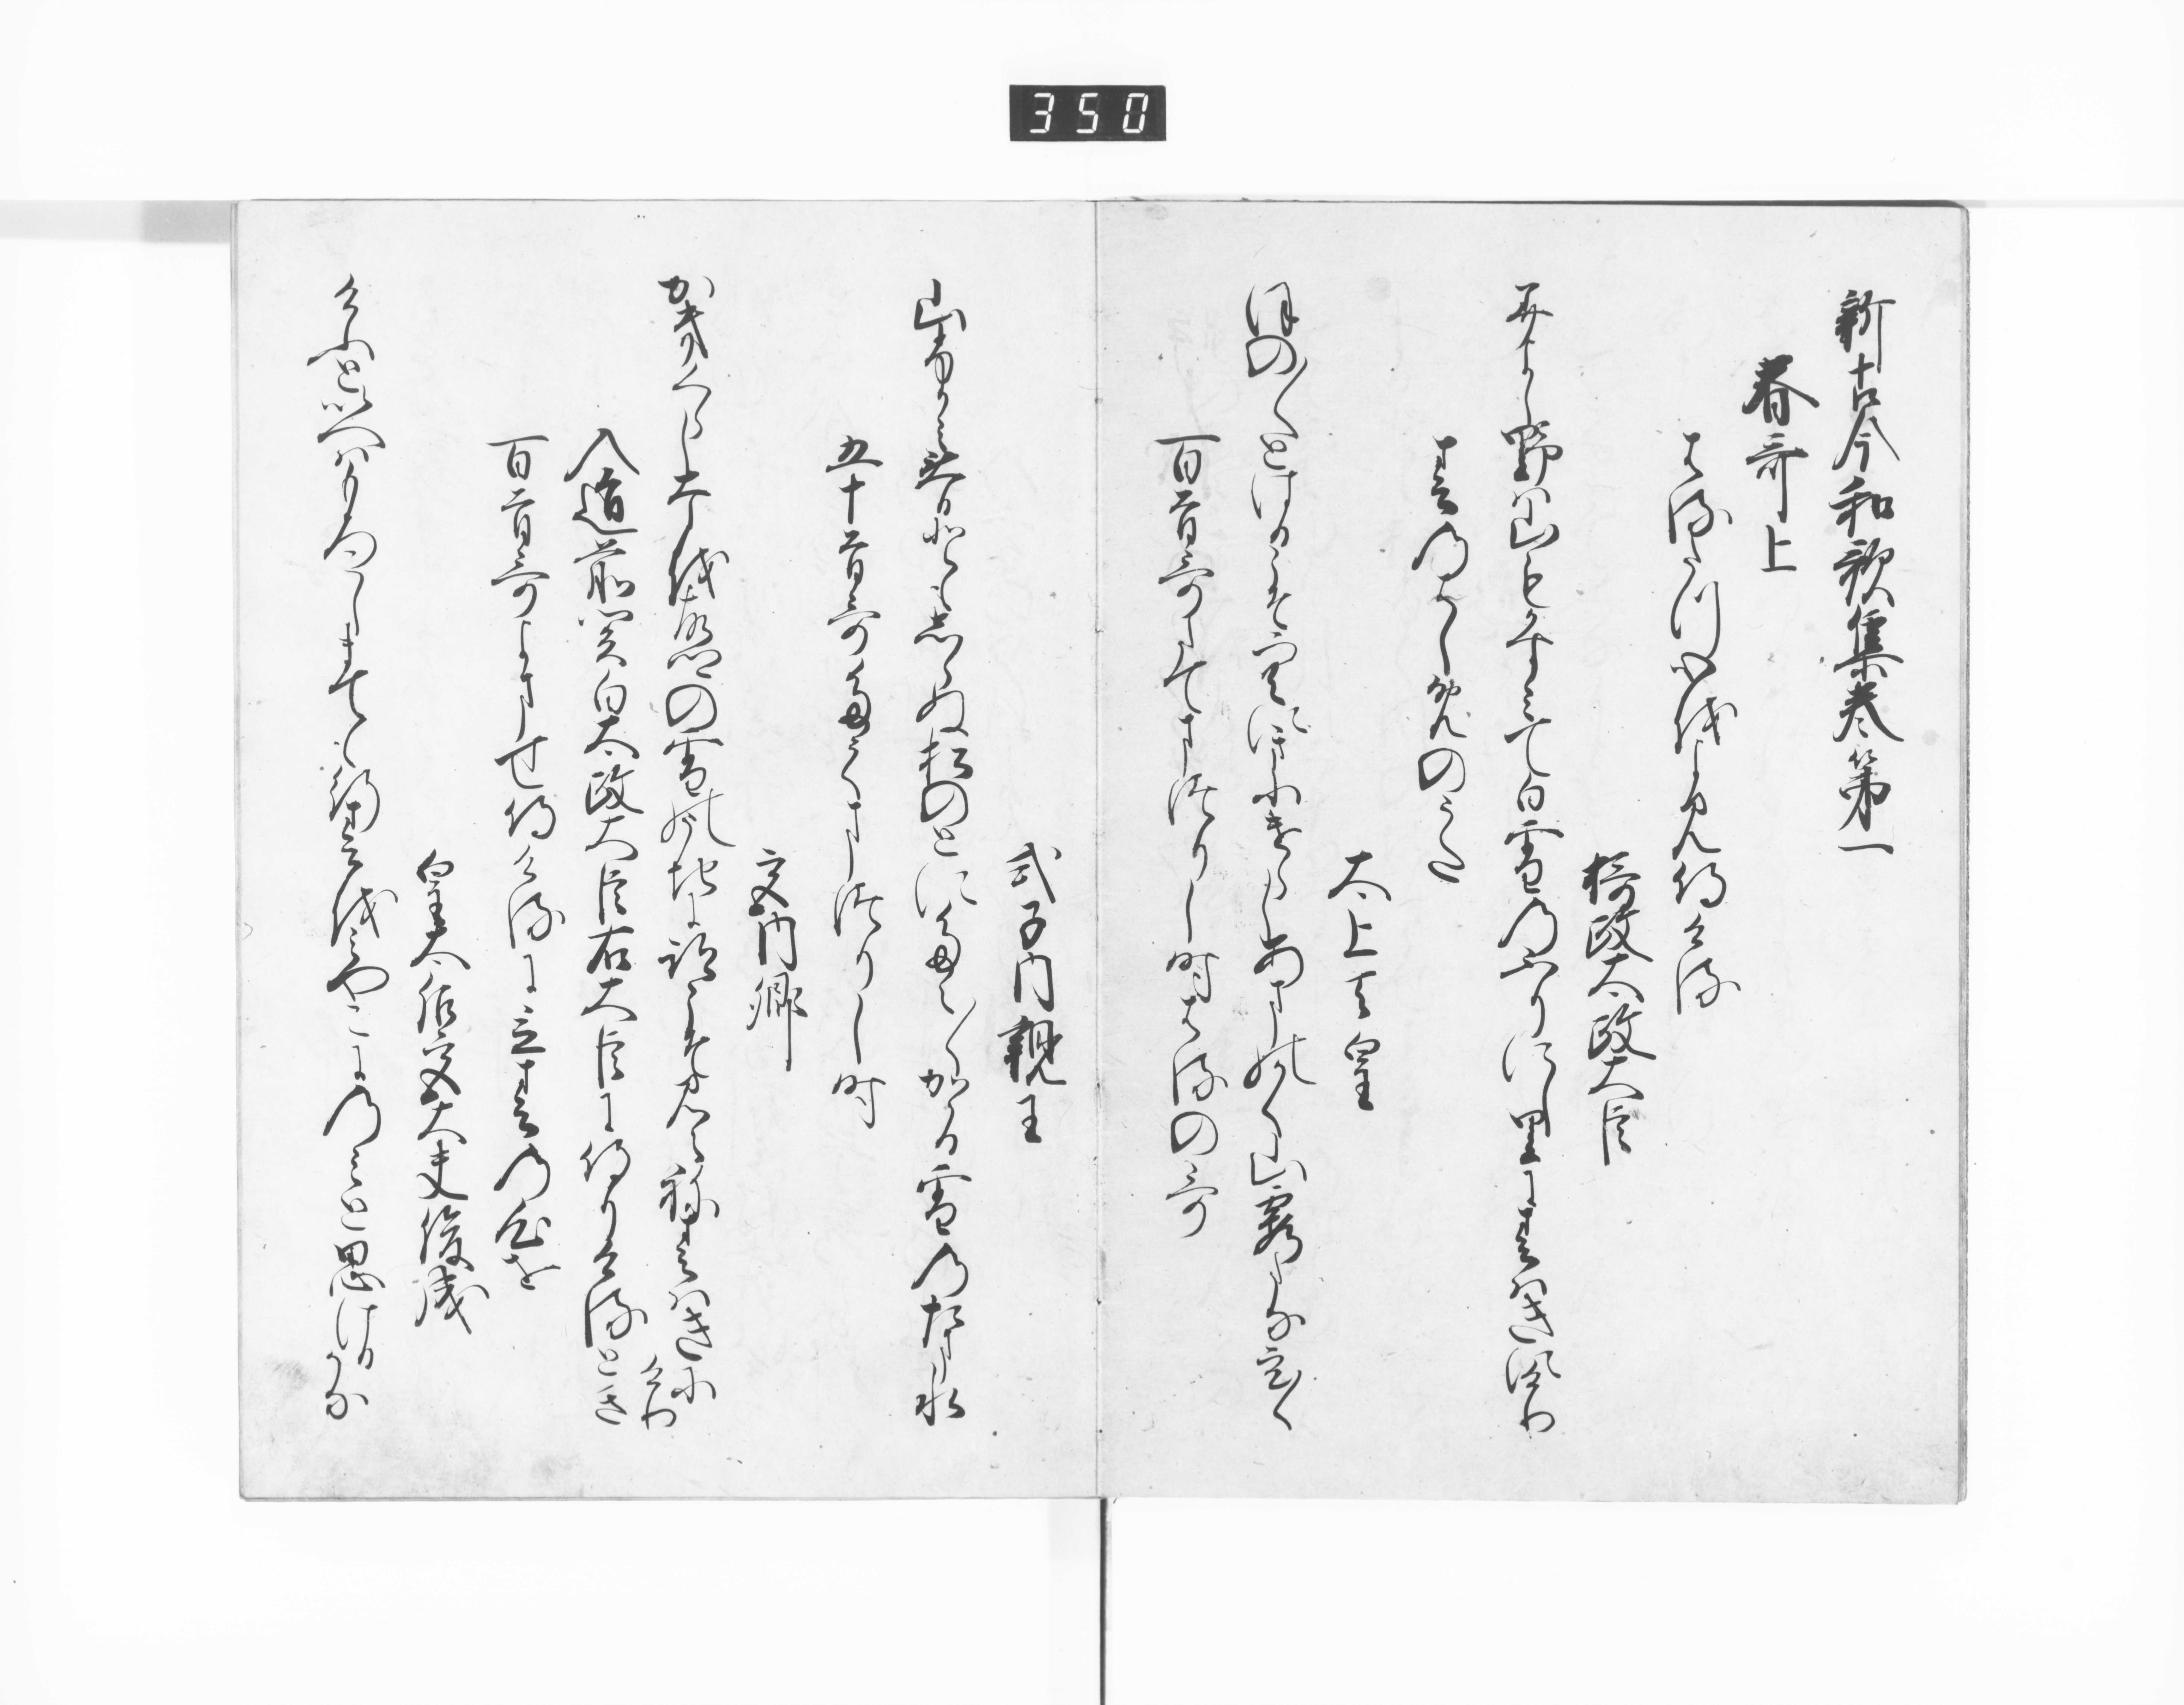 350
新古今和歌集巻第一
春哥上
はるたつ心をよみ侍ける
摂政太政大臣
みよし野は山もかすみて白雪のふりにし里に春はき
にけり
春のはしめのうた
太上天皇
ほの〳〵とはるこそ空にきにけらしあまのかく山霞たな引く
百首哥たてまつりし時はるの哥
式子内親王
山ふかみ春ともしらぬ松のとにたえ〳〵かゝる雪の玉水
五十首哥たてまつりし時
宮内卿
かきくらし猶故郷の雪のうちに跡こそみえね春はきに
けり
入道前関白太政大臣右大臣に侍りけるとき
百首哥よませ侍けるに立春の心を
皇太后宮大夫俊成
けふといへはもろこしまても行春を都にのみと思けるかな